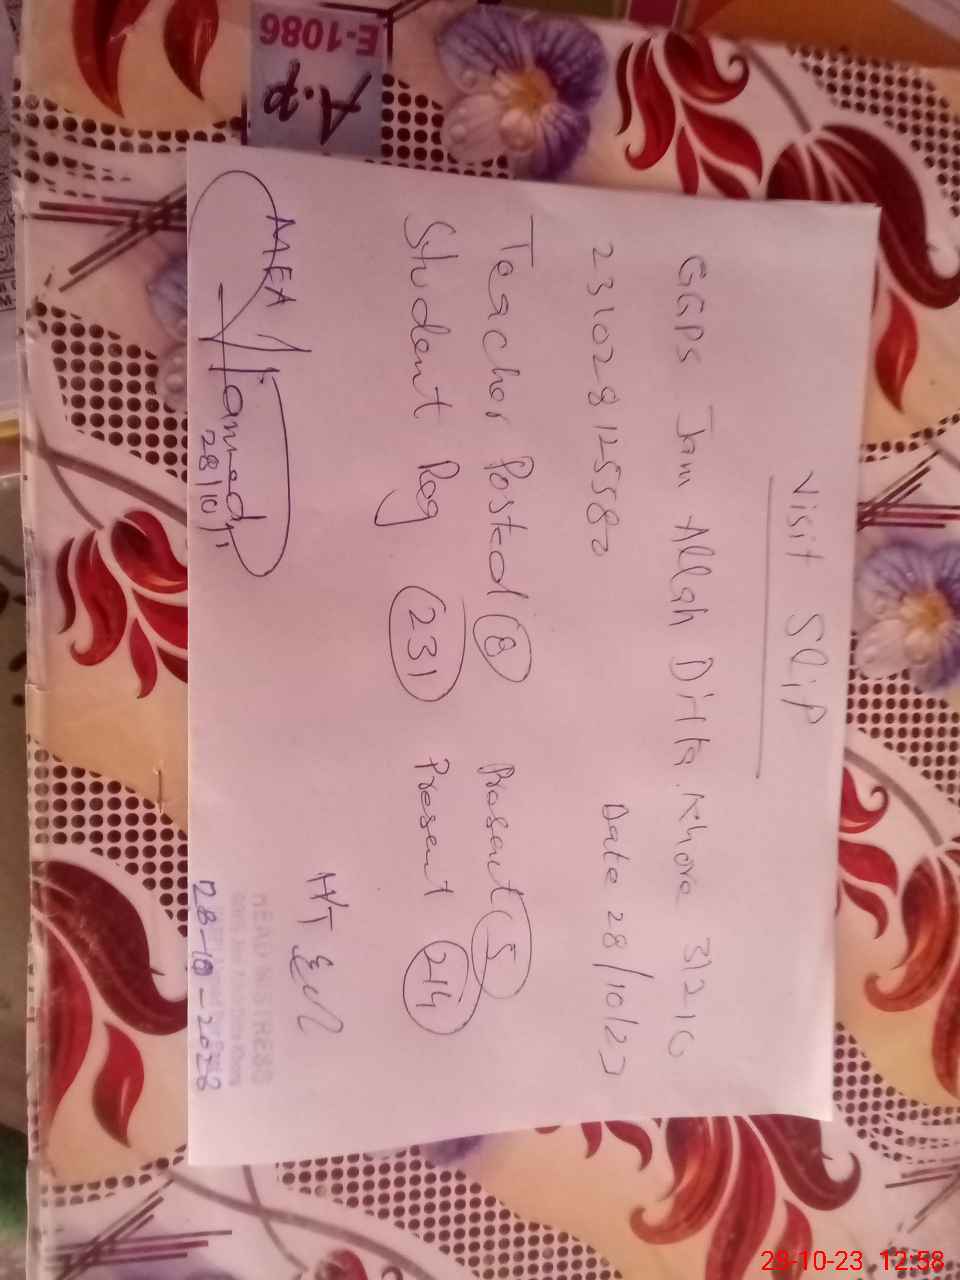 Visit Slip
GGPS Jam Allah Ditta Khora 31216
2310281125580 Date 28/10/23
Teacher Posted 8 Present 5
Student Reg 231 Present 214
MEA
28/10/
H/T
HEAD MISTRESS
28-10-2023
E-1086
A.P
29-10-23 12:58